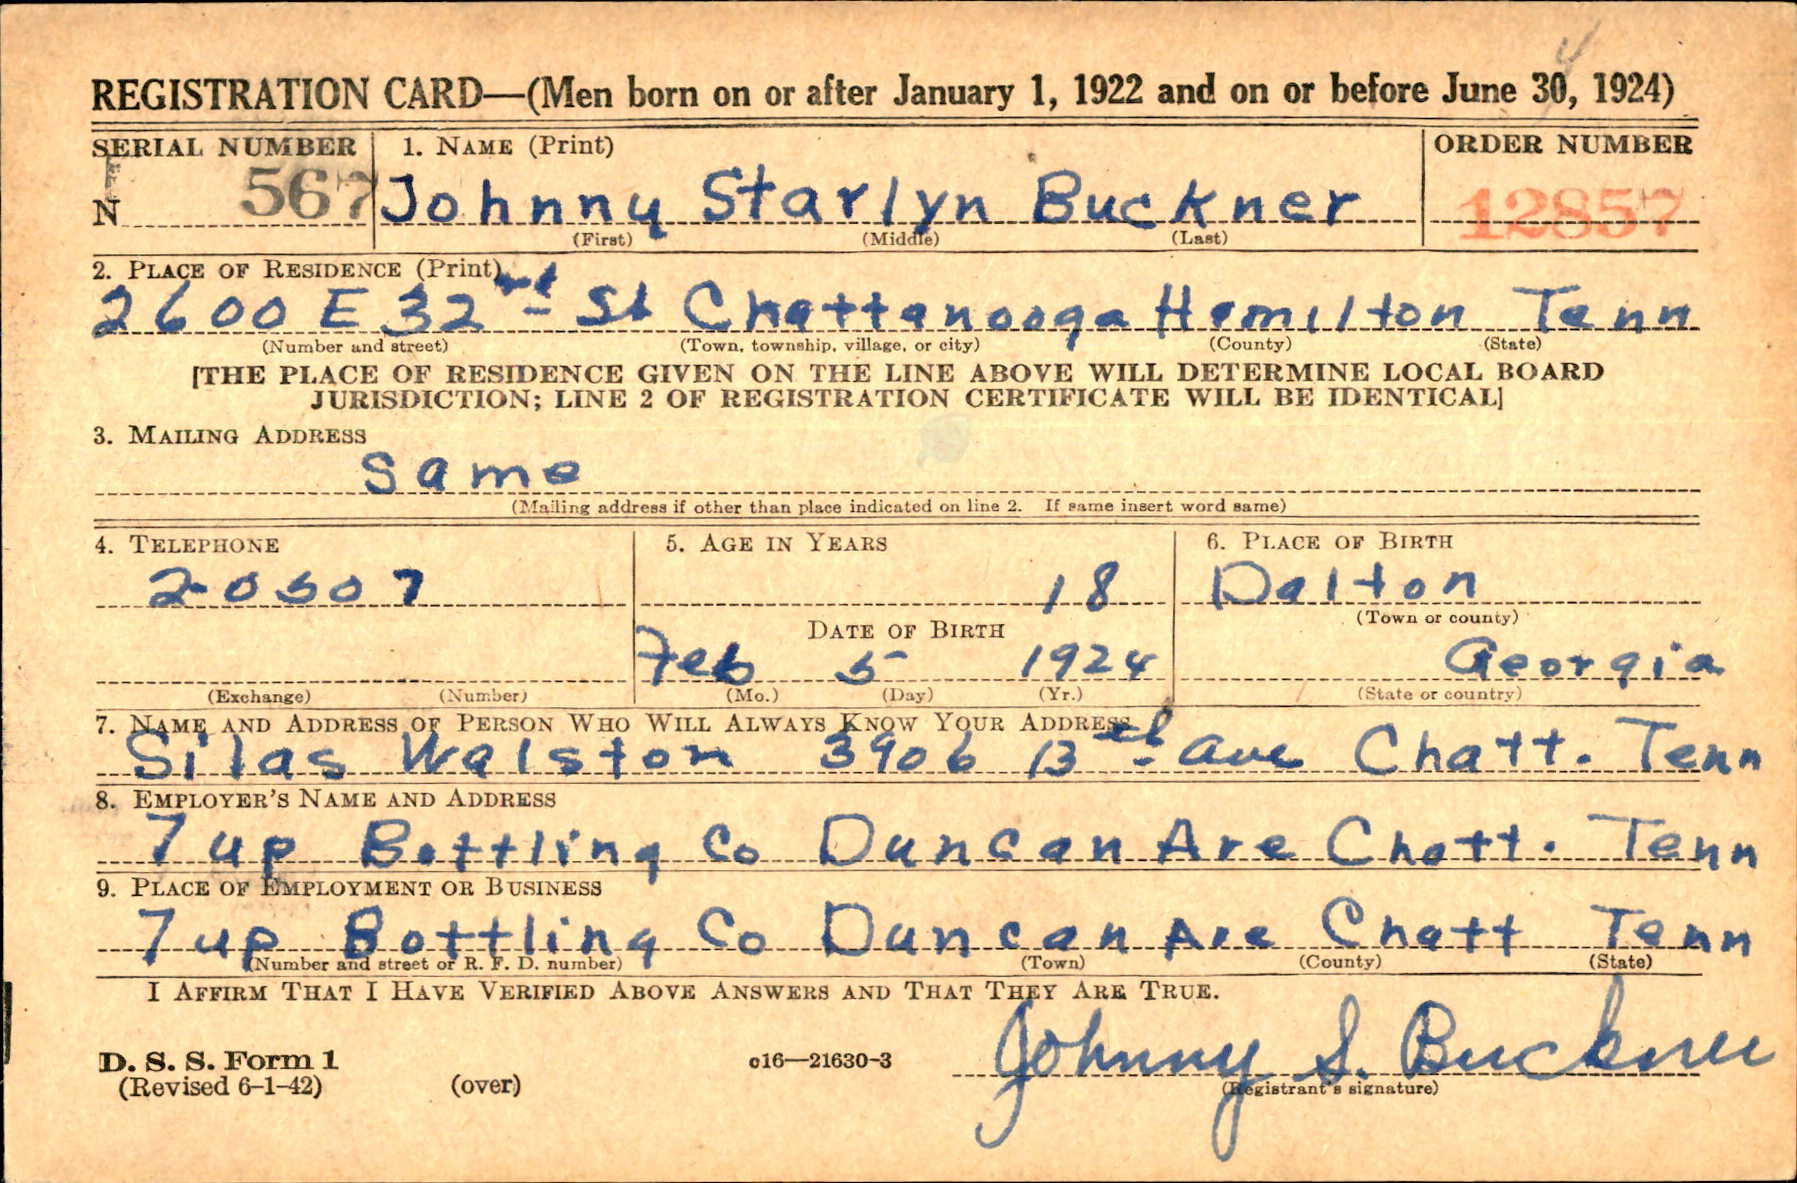 REGISTRATION CARD—(Men born on or after January 1, 1922 and on or before June 30, 1924)
SERIAL NUMBER 1. NAME (Print) ORDER NUMBER
N 567 Johnny Starlyn Buckner 12857
(First) (Middle) (Last)
2. PLACE OF RESIDENCE (Print)
2600 E 32nd St Chattanooga Hamilton Tenn
(Number and street) (Town, township, village, or city) (County) (State)
[THE PLACE OF RESIDENCE GIVEN ON THE LINE ABOVE WILL DETERMINE LOCAL BOARD
JURISDICTION; LINE 2 OF REGISTRATION CERTIFICATE WILL BE IDENTICAL]
3. MAILING ADDRESS
Same
(Mailing address if other than place indicated on line 2. If same insert word same)
4. TELEPHONE 5. AGE IN YEARS 6. PLACE OF BIRTH
2-0507 18 Dalton
(Town or county)
DATE OF BIRTH
Feb 5 1924 Georgia
(Exchange) (Number) (Mo.) (Day) (Yr.) (State or country)
7. NAME AND ADDRESS OF PERSON WHO WILL ALWAYS KNOW YOUR ADDRESS
Silas Walston 3906 13th ave Chatt. Tenn
8. EMPLOYER'S NAME AND ADDRESS
7 up Bottling Co Duncan Are Chatt. Tenn
9. PLACE OF EMPLOYMENT OR BUSINESS
7 up Bottling Co Duncan Are Chatt Tenn
(Number and street or R. F. D. number) (Town) (County) (State)
I AFFIRM THAT I HAVE VERIFIED ABOVE ANSWERS AND THAT THEY ARE TRUE.
Johnny S. Buckner
D. S. S. Form 1 c16—21630-3
(Revised 6-1-42) (over) (Registrant's signature)